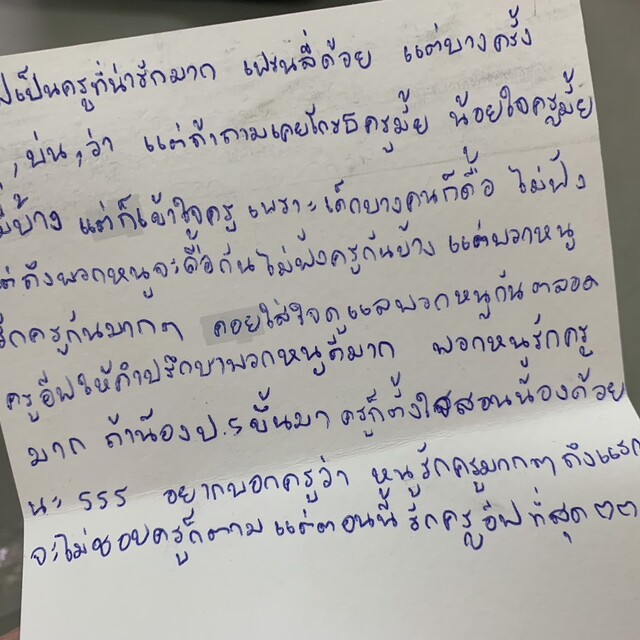 เป็นครูที่น่ารักมาก เฟรนลี่ด้วย แต่บางครั้ง
,บ่น,ว่า แต่ถ้าถามเคยโกรธครูมั้ย น้อยใจครูมั้ย
มีบ้าง แต่ก็เข้าใจครู เพราะเด็กบางคนก็ดื้อ ไม่ฟัง
แต่ถึงพวกหนูจะดื้อกันไม่ฟังครูกันบ้าง แต่พวกหนู
รักครูกันมากๆ คอยใส่ใจดูแลพวกหนูกันตลอด
ครูอีฟให้คำปรึกษาพวกหนูดีมาก พวกหนูรักครู
มาก ถ้าน้องป.5ขึ้นมา ครูก็ตั้งใจสอนน้องด้วย
นะ 555 อยากบอกครูว่า หนูรักครูมากๆถึงแรก
จะไม่ชอบครูก็ตามแต่ตอนนี้รักครูอีฟที่สุดๆๆ